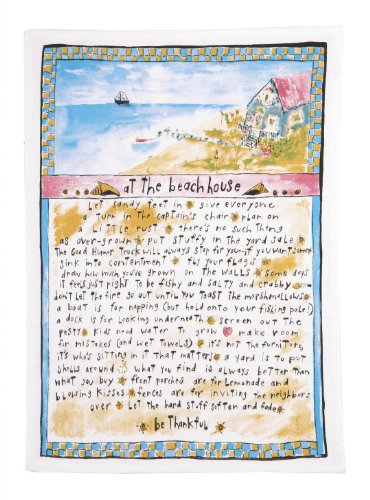 at the beach house
Let sandy feet in give everyone
a turn in the captain's chair plan on
a little rust there's no such thing
as over-grown put stuffy in the yard sale
The Good Humor Truck will always stop for you-if you want
sink into contentment fly your flags
draw how much you've grown on the walls some days
it feels just right to be fishy and salty and crabby
don't let the fire go out until you toast the marshmallows
a boat is for napping (but hold onto your fishing pole!)
a dock is for looking underneath screen out the
pesty kids need water to grow make room
for mistakes (and wet towels) it's not the furniture,
it's who's sitting in it that matters a yard is to put
shells around what you find is always better than
what you buy front porches are for lemonade and
blowing kisses fences are for inviting the neighbors
over let the hard stuff soften and fade
be thankful